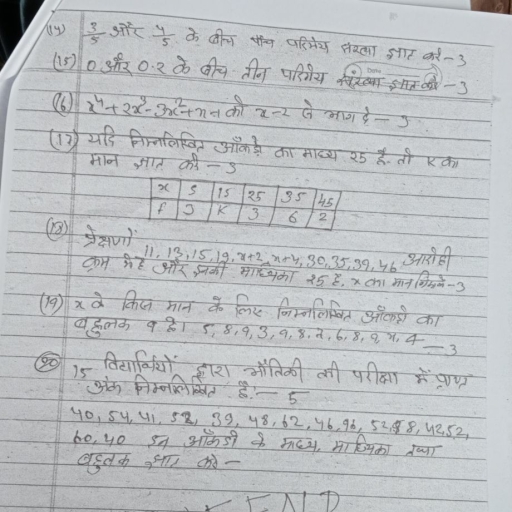 (14) 3/5 और 4/5 के बीच पाँच परिमेय संख्या ज्ञात करे - 3
(15) 0 और 0.2 के बीच तीन परिमेय संख्या ज्ञात करे - 3
(16) x⁴+2x³-3x²+x-1 को x-2 से भाग दे - 3
(17) यदि निम्नलिखित आँकड़े का माध्य 25 है तो K का
मान ज्ञात करे - 3
x 5 15 25 35 45
f 3 K 3 6 2
(18) प्रेक्षणों 11, 13, 15, 19, x+2, x+4, 30, 35, 39, 46 आरोही
क्रम में है और इनकी माध्यिका 25 है, x का मान - 3
(19) x के किस मान के लिए निम्नलिखित आँकड़ो का
बहुलक 9 है। 5, 8, 9, 3, 9, 8, 7, 6, 8, 9, x, 4 - 3
(20) 15 विद्यार्थियों द्वारा भौतिकी की परीक्षा में प्राप्त
अंक निम्नलिखित है:- 5
40, 54, 41, 52, 39, 48, 62, 46, 96, 52, 98, 42, 52,
60, 40 इन आँकड़ो के माध्य, माध्यिका तथा
बहुलक ज्ञात करे -
END